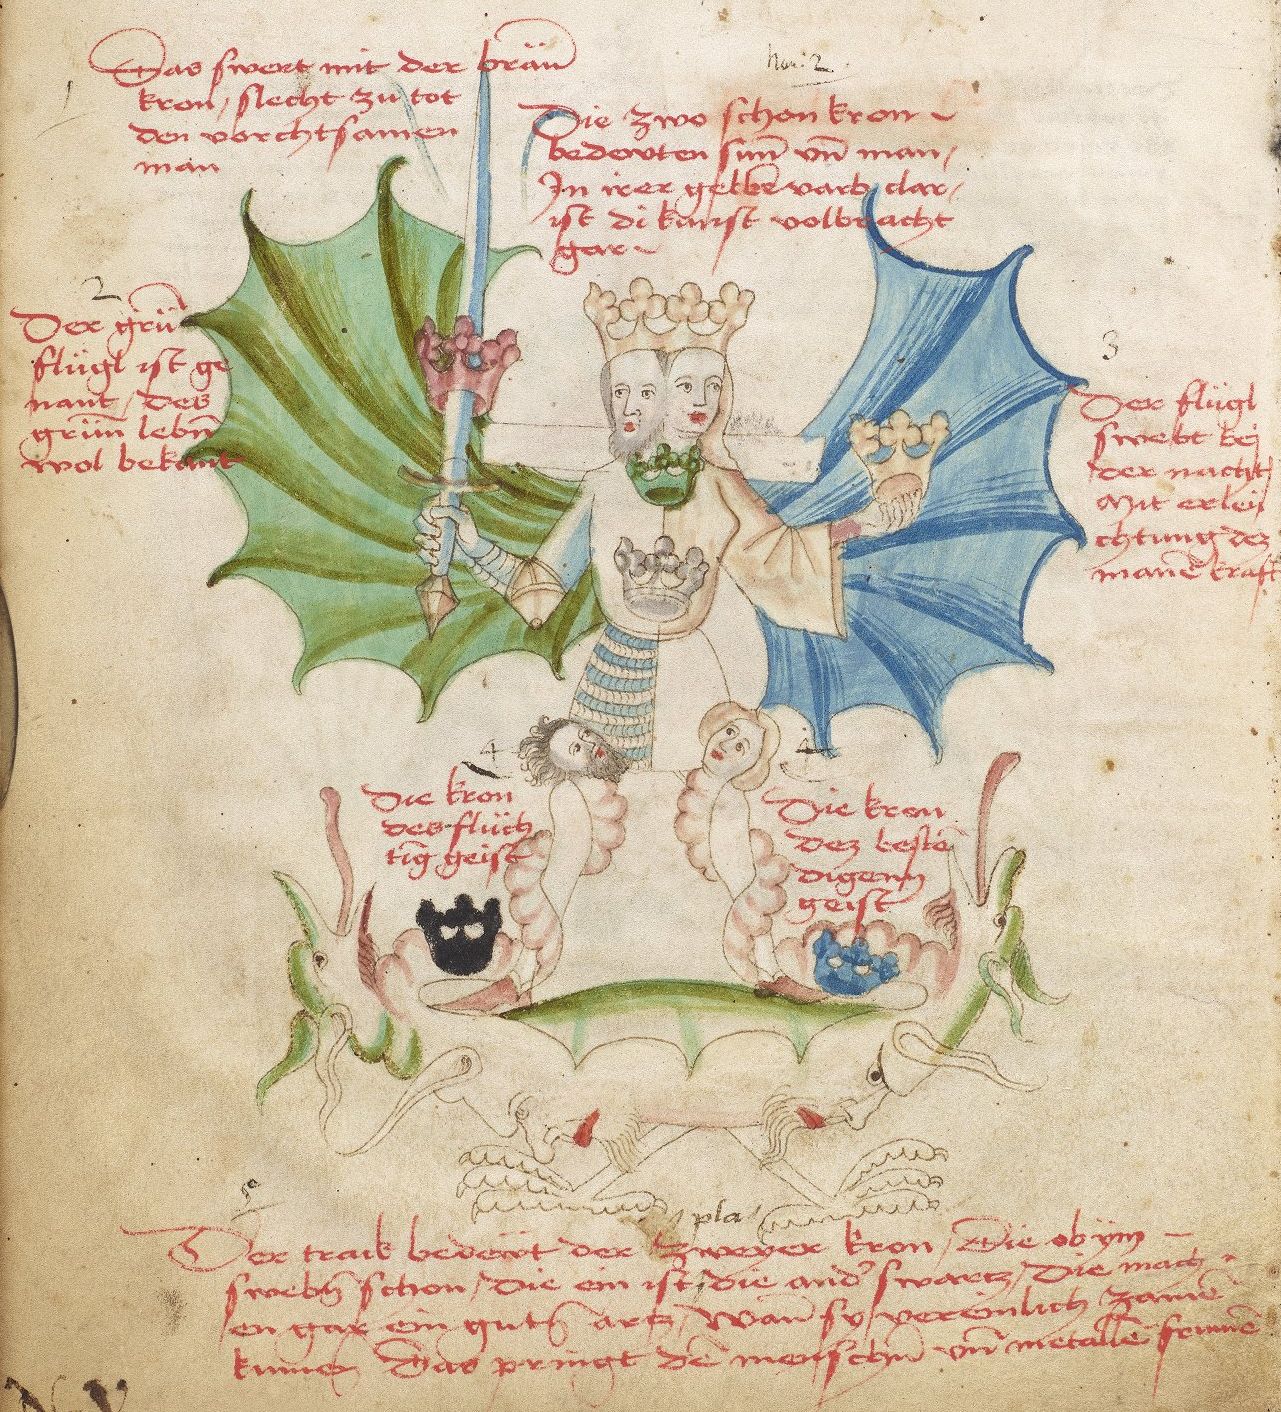 Das swert mit der bräu
kron / slecht zu tot
den vorchtsamen
man
Nu: 2
Die zwo schon kron
bedewten sun vn̄ man /
In irer gelbē varb clar /
ist di kunst volbracht
gar
2
Der grū
flügl ist ge
nant / des
grün̄ lebn̄
wol bekant
3
Der flügl
swebt bej
der nacht /
Mit erlei
chtung des
manē kraft
4
Die kron
des flüch
tiḡ geist
4
Die kron
dez bestē
digenn
geist
pla
5
Der track bedewt der zweyer kron / Die ob ym
swebn̄ schon / Die ein ist / die and' swartz / Die mach
en gar ein gutn̄ artz / Wan̄ sy vereinlich zamē
kumen Das pringt dē menschn̄ vn̄ metallē frumē